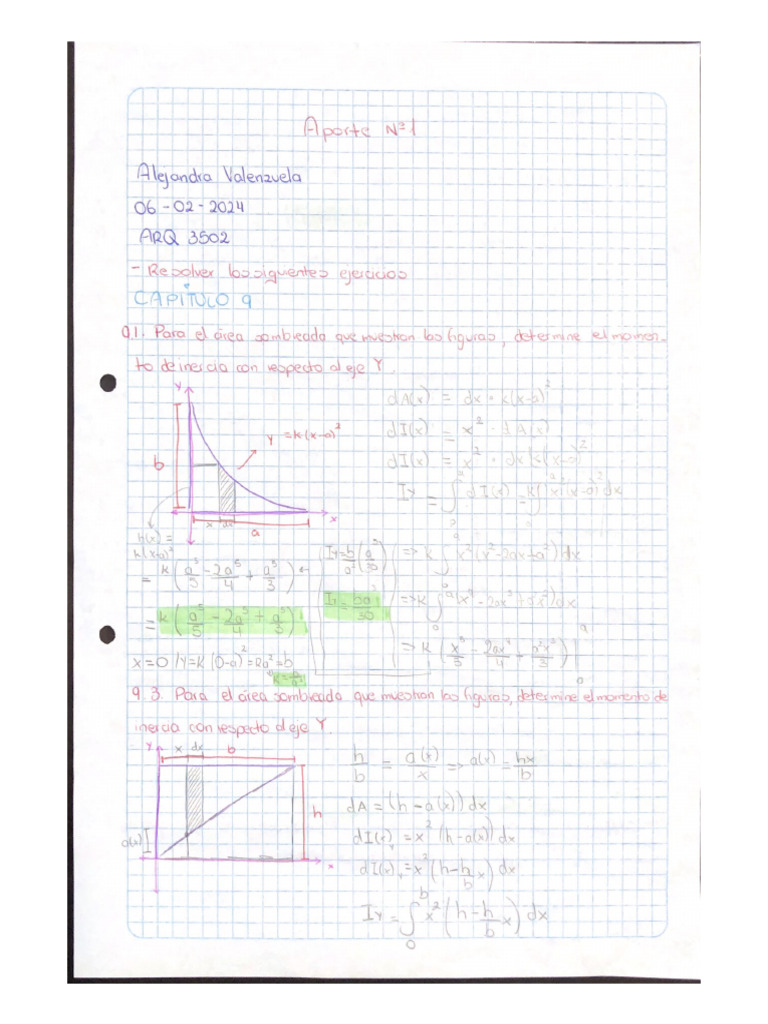 Aporte N°1
Alejandra Valenzuela
06-02-2024
ARQ 3502
- Resolver los siguientes ejercicios
CAPÍTULO 9
9.1. Para el área sombreada que muestran las figuras, determine el momen-
to de inercia con respecto al eje Y.
Y
y = k(x-a)²
b
x dx
a
x
h(x) =
k(x-a)²
dA(x) = dx · k(x-a)²
dI(x) = x² · dA(x)
dI(x) = x² · dx k(x-a)²
Iy = ∫ dI(x) = k∫ x²(x-a)² dx
=> k ∫ x²(x² - 2ax + a²) dx
=> k ∫
=> k (x⁵/5 - 2ax⁴/4 + a²x³/3)|
= k (a⁵/5 - 2a⁵/4 + a⁵/3)
= k (a⁵/5 - 2a⁵/4 + a⁵/3)
x=0 / y=k(0-a)² = ka² = b
k = b/a²
Iy = b/a² (a⁵/30)
Iy = ba³/30
9.3. Para el área sombreada que muestran las figuras, determine el momento de
inercia con respecto al eje Y.
Y
x dx b
a(x)
h
x
h/b = a(x)/x => a(x) = hx/b
dA = (h - a(x)) dx
dI(x)y = x² (h - a(x)) dx
dI(x)y = x² (h - h/b x) dx
Iy = ∫₀ᵇ x² (h - h/b x) dx